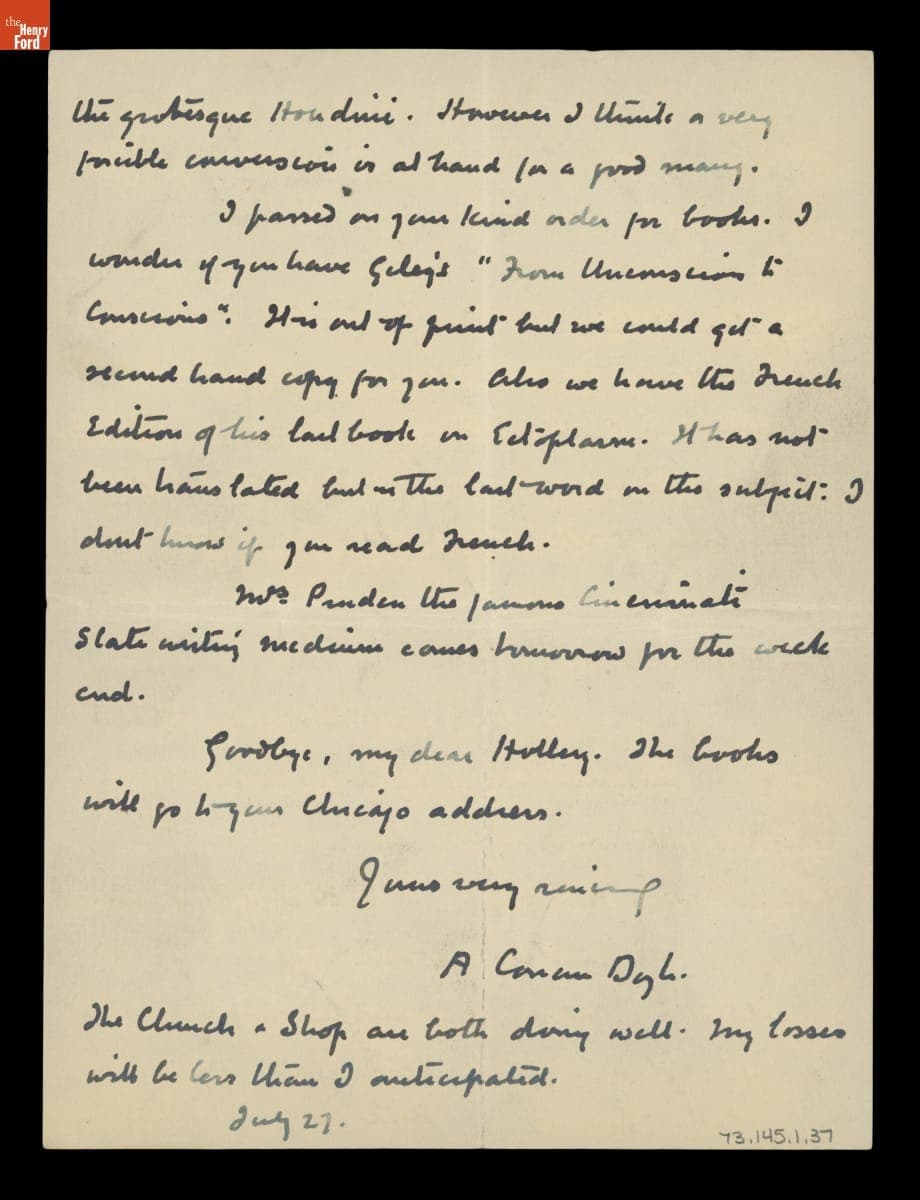 the Henry Ford
the grotesque Houdini. However I think a very
forcible conversion is at hand for a good many.
I passed on your kind order for books. I
wonder if you have Geley's "From Unconscious to
Conscious". It is out of print but we could get a
second hand copy for you. Also we have the French
Edition of his last book on Ectoplasm. It has not
been translated but is the last word on the subject. I
dont know if you read French.
Mrs Pruden the famous Cincinnati
Slate writing medium comes tomorrow for the week
end.
Goodbye, my dear Holley. The books
will go to your Chicago address.
Yours very sincerely
A Conan Doyle.
The Church & Shop are both doing well. My losses
will be less than I anticipated.
July 27.
73.145.1.37